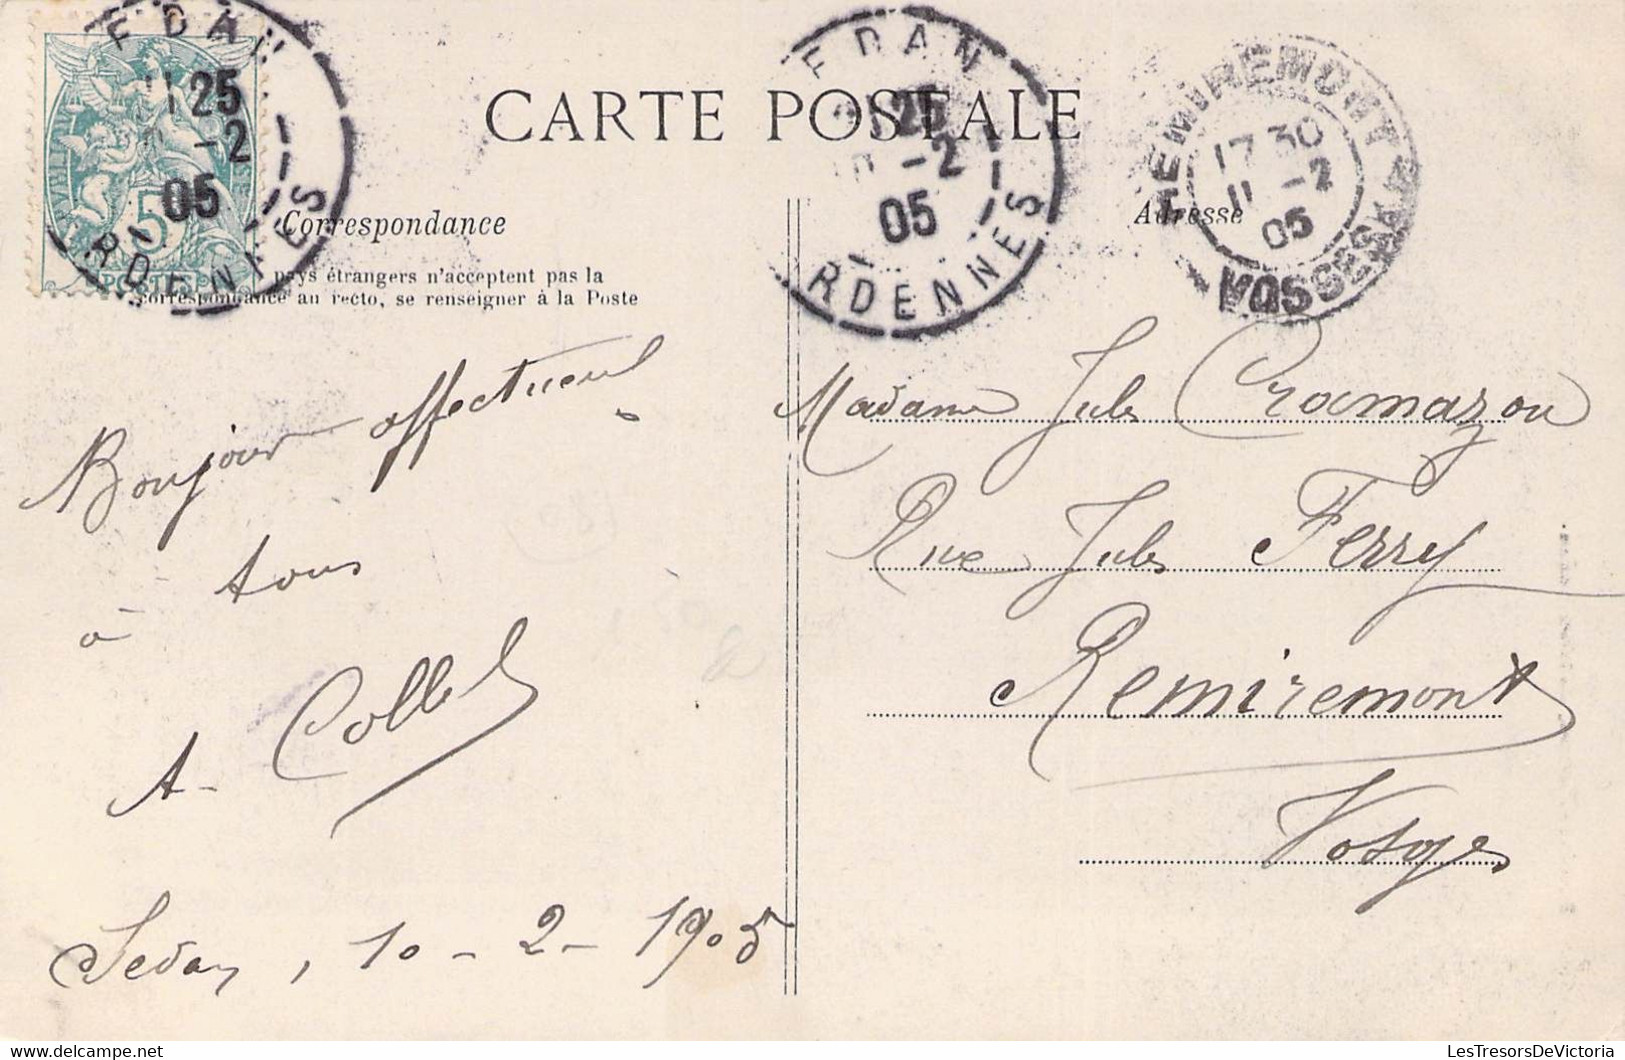 CARTE POSTALE
Correspondance
pays étrangers n'acceptent pas la
correspondance au recto, se renseigner à la Poste
EDAN
11 25
-2
05
RDENNES
5
POSTES
EDAN
25
-2
05
RDENNES
REMIREMONT
17 30
11 -2
05
VOSGES
Adresse
Bonjour affectueux
à tous
A. Collet
Sedan, 10 - 2 - 1905
Madame Jules Cramazou
Rue Jules Ferry
Remiremont
Vosges
LesTresorsDeVictoria